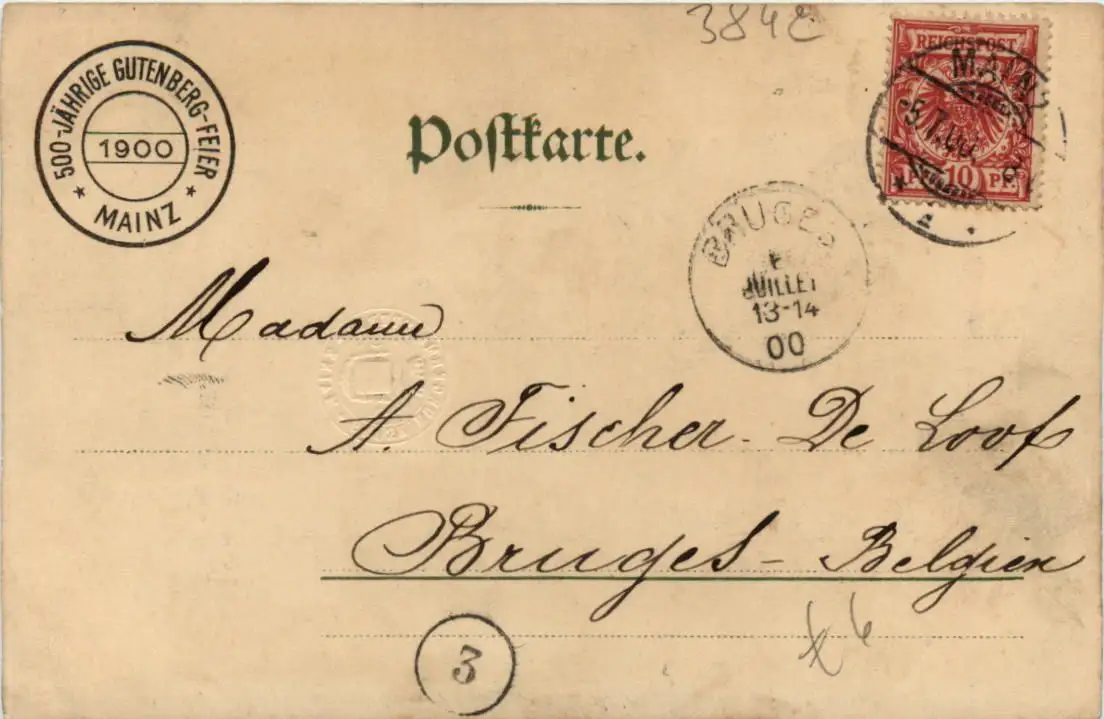 384E
500-JÄHRIGE GUTENBERG-FEIER
1900
* MAINZ *
Postkarte.
REICHSPOST
MAIN
5.7.00.
10 PF.
BRUGES
6
JUILLET
13-14
00
Madame
A. Fischer - De Loof
Bruges - Belgien
3
6